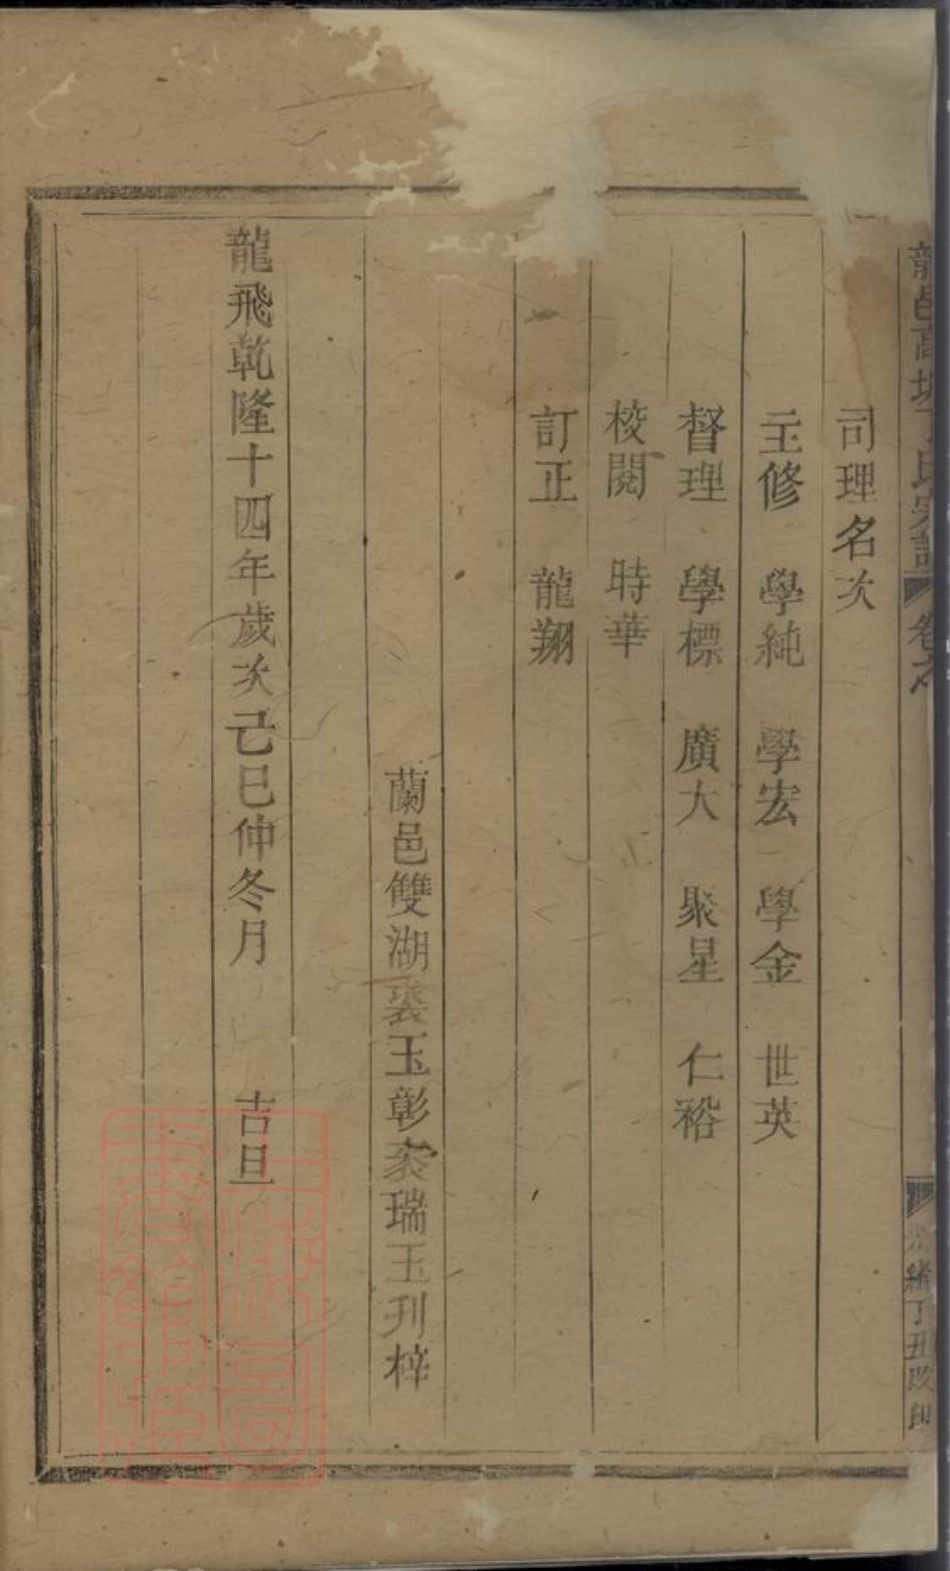 龍邑高塘丁氏宗譜 卷之
光緒丁丑改印
司理名次
主修 學純 學宏 學金 世英
督理 學標 廣大 聚星 仁裕
校閱 時華
訂正 龍翔
蘭邑雙湖裘玉彰裘瑞玉刋梓
龍飛乾隆十四年歲次己巳仲冬月 吉旦